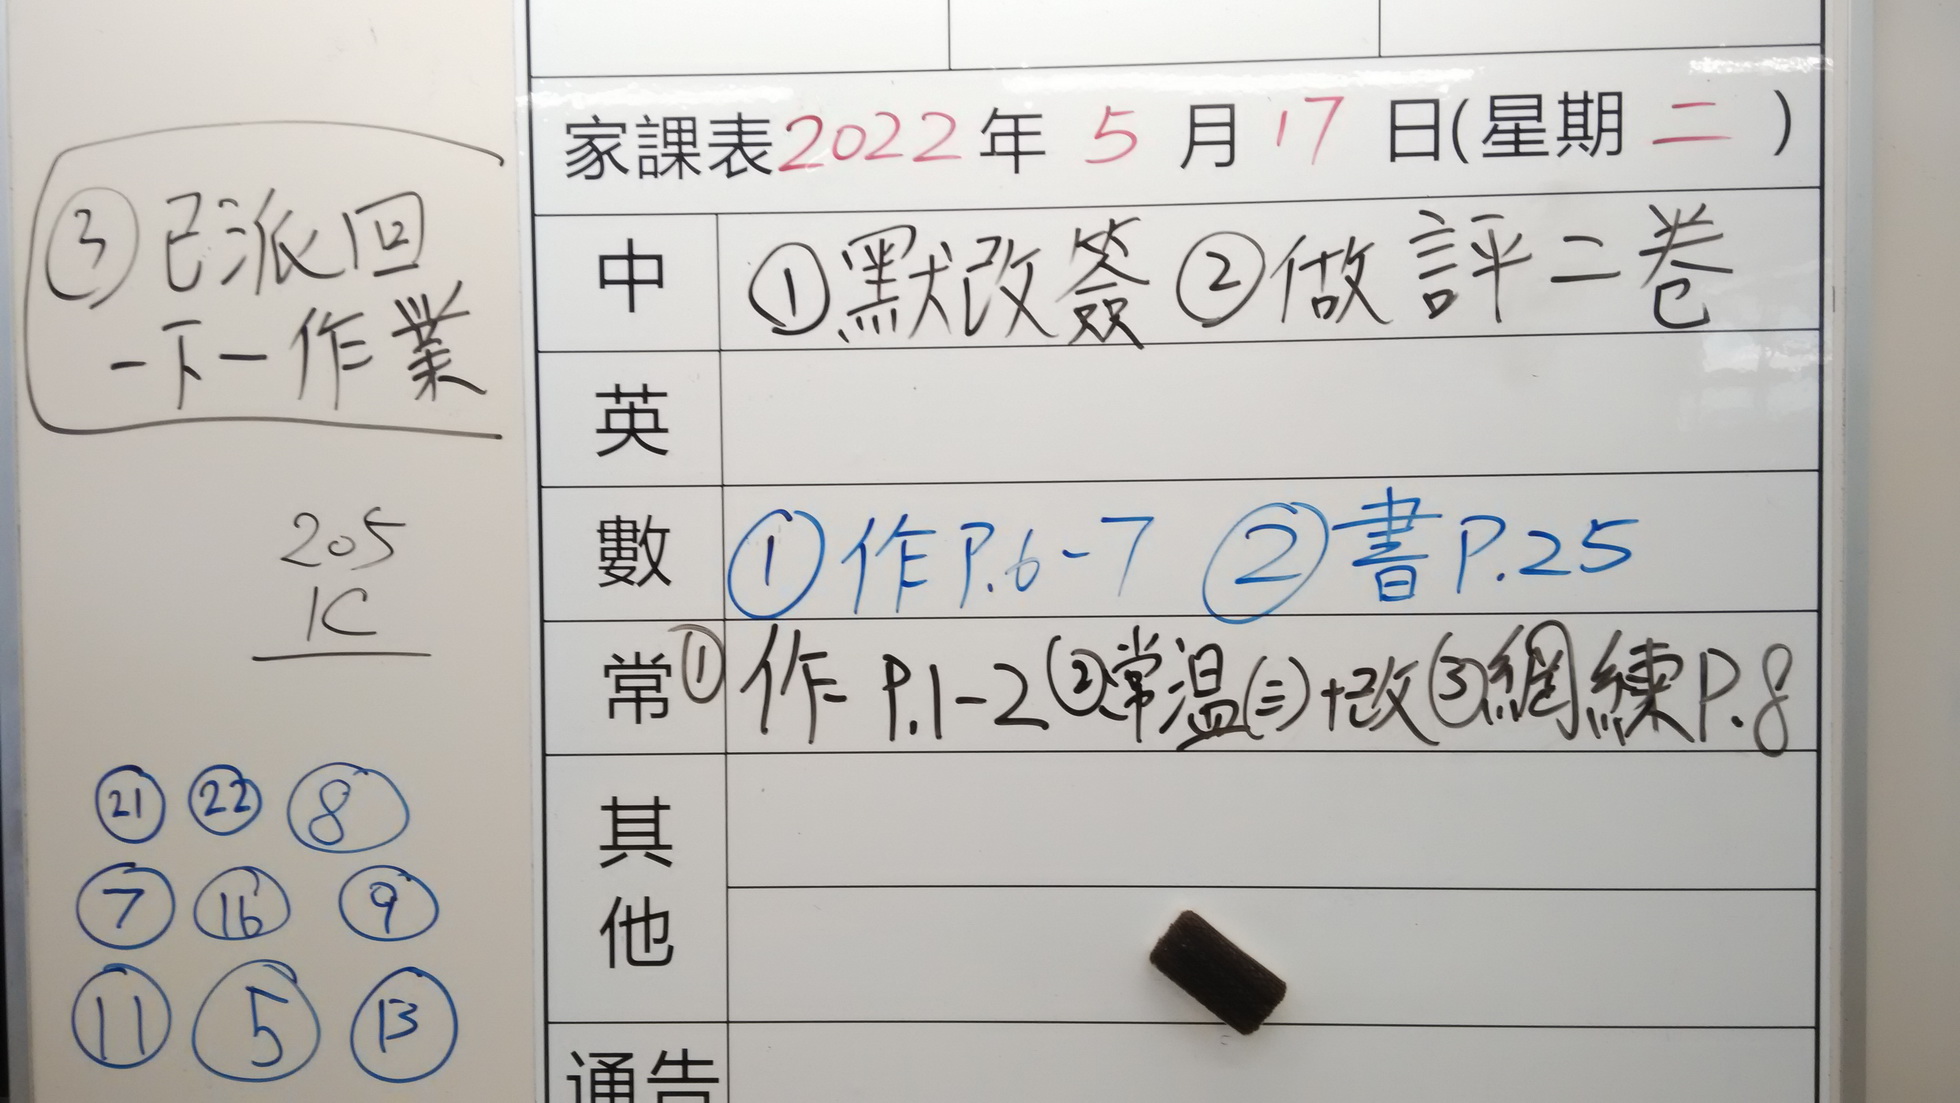 家課表2022年 5 月 17 日(星期 二 )
③已派回
一下一作業
中 ①默改簽 ②做評二卷
英
數 ①作P.6-7 ②書P.25
205
1C
常 ①作 P.1-2 ②常温(三)+改 ③網練P.8
其他
㉑ ㉒ ⑧
⑦ ⑯ ⑨
⑪ ⑤ ⑬
通告